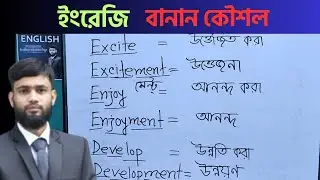 ইংরেজি বানান কৌশল
ENGLISH
Excite = উত্তেজিত করা
Excitement = উত্তেজনা
মেন্ট
Enjoy = আনন্দ করা
Enjoyment = আনন্দ
Develop = উন্নতি করা
Development = উন্নয়ণ